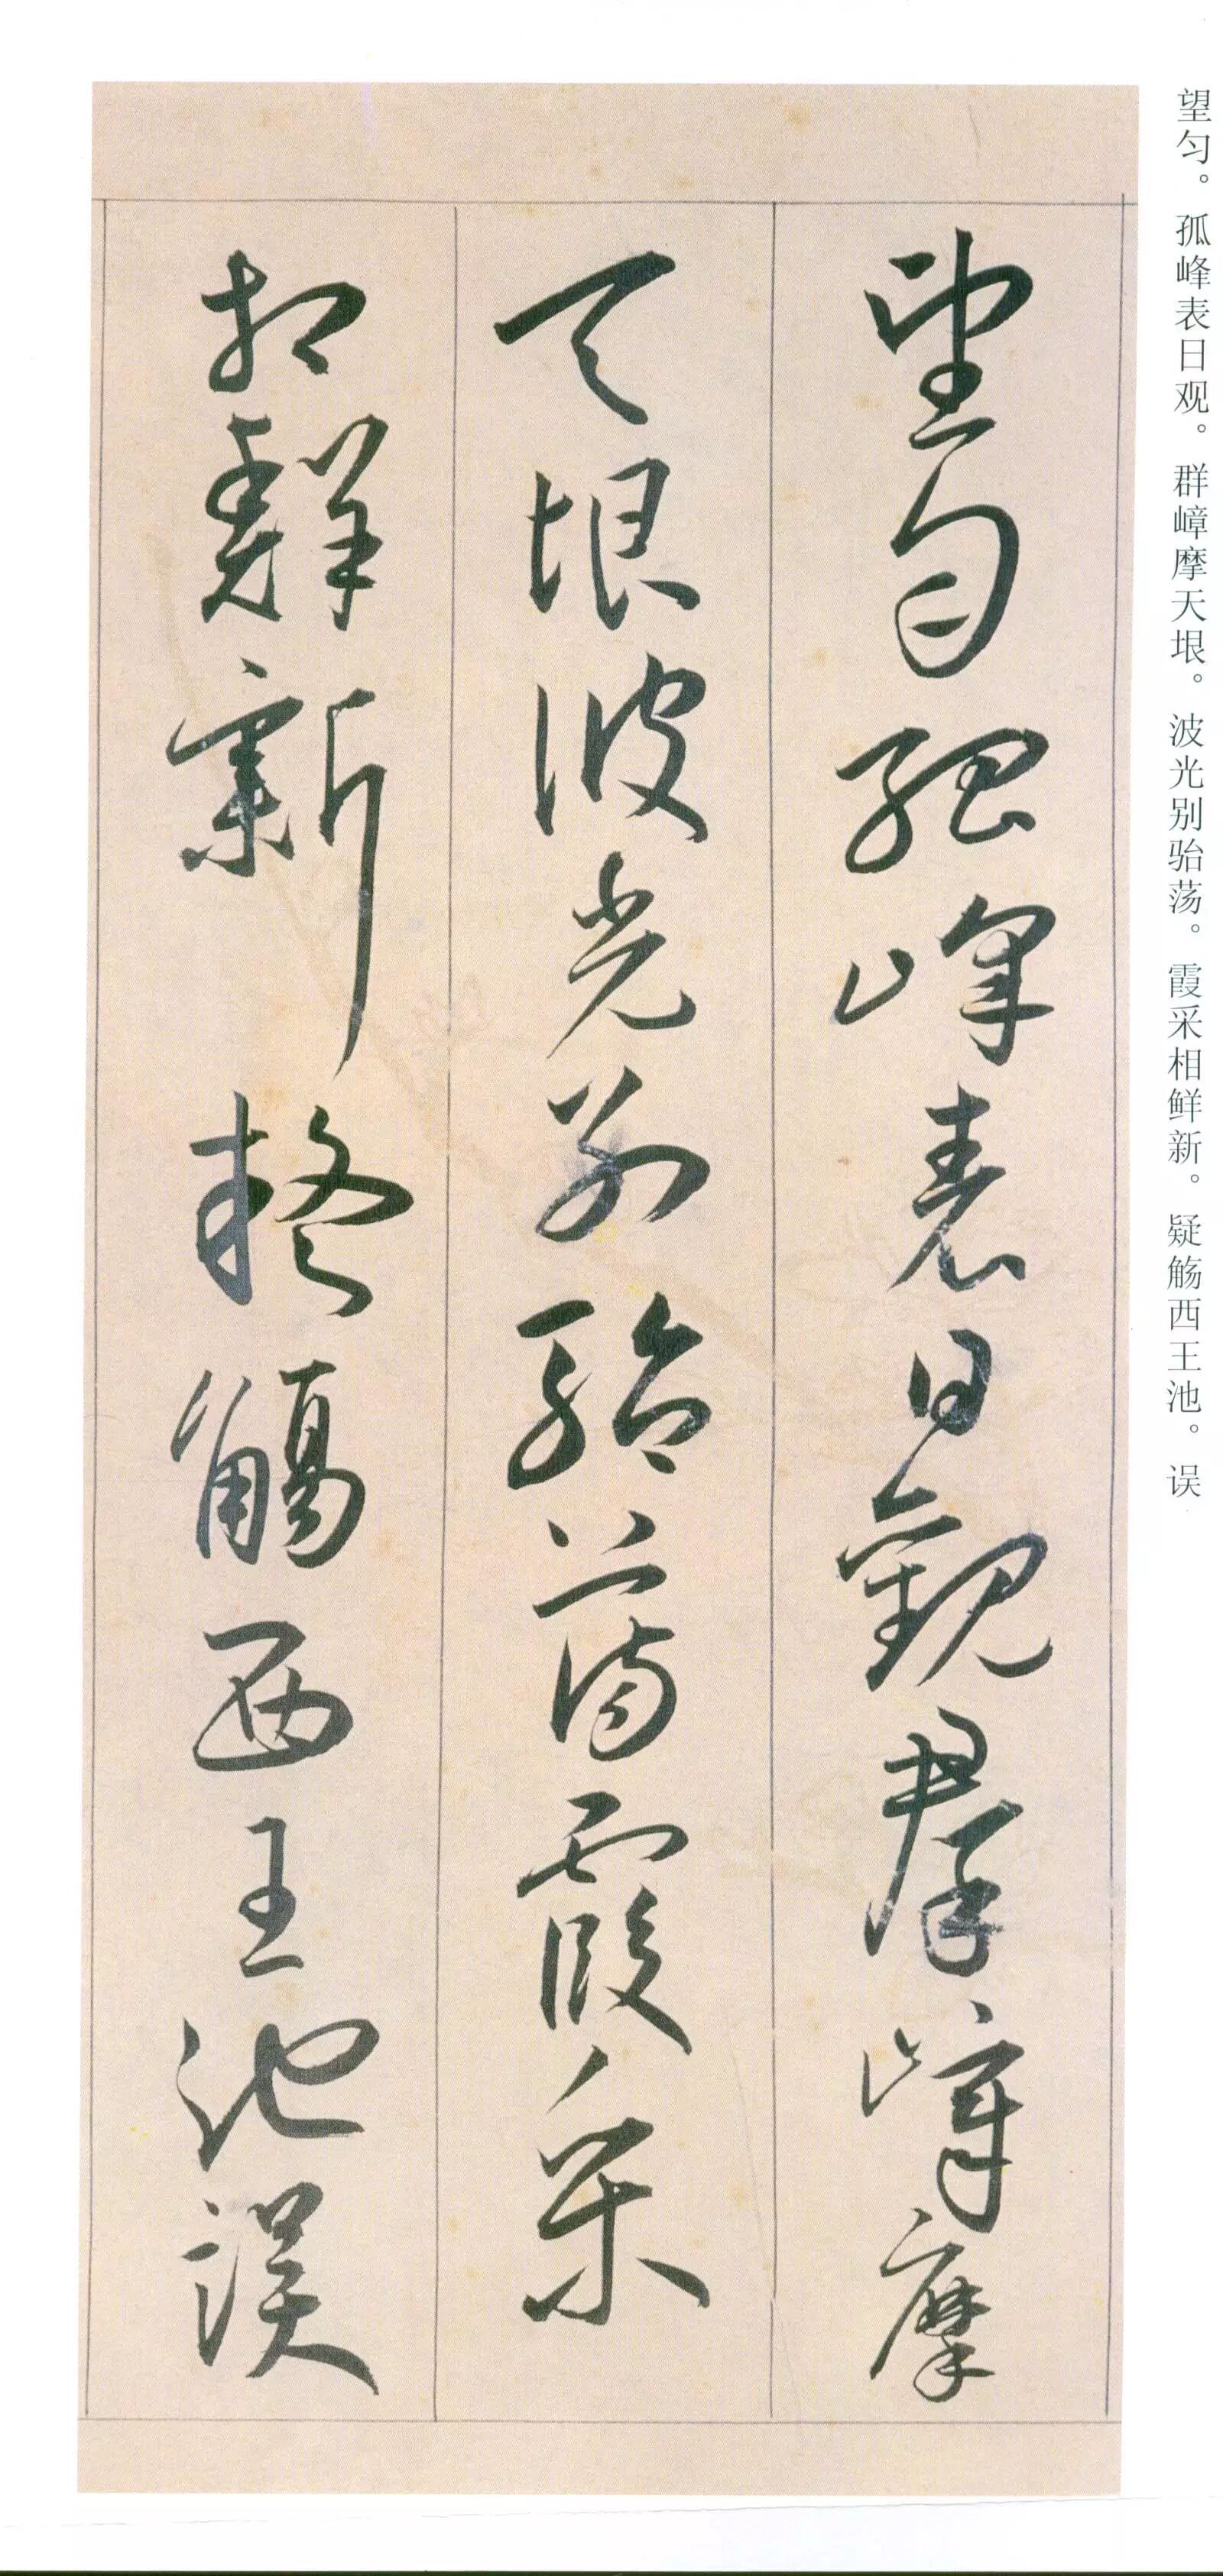 望匀。孤峰表日观。群嶂摩天垠。波光别骀荡。霞采相鲜新。疑觞西王池。误
望匀孤峰表日觀羣嶂摩
天垠波光别駘蕩霞采
相鮮新疑觴西王池误